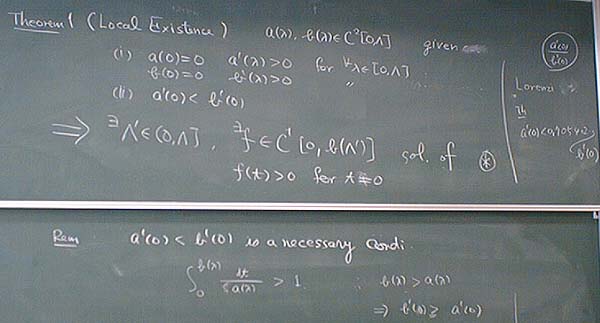 Theorem 1 (Local Existence) a(λ), b(λ) ∈ C²[0,Λ] given
(i) a(0)=0 a'(λ)>0 for ∀λ∈[0,Λ]
b(0)=0 b'(λ)>0 〃
(ii) a'(0) < b'(0)
⇒ ∃Λ'∈(0,Λ], ∃f∈C¹[0, b(Λ')] sol. of ⊛
f(t)>0 for t≠0
a'(0)
b'(0)
Lorenzi
Th
b'(0)
Rem a'(0) < b'(0) is a necessary condi.
> 1 ∵ b(λ) > a(λ)
⇒ b'(0) ≥ a'(0)